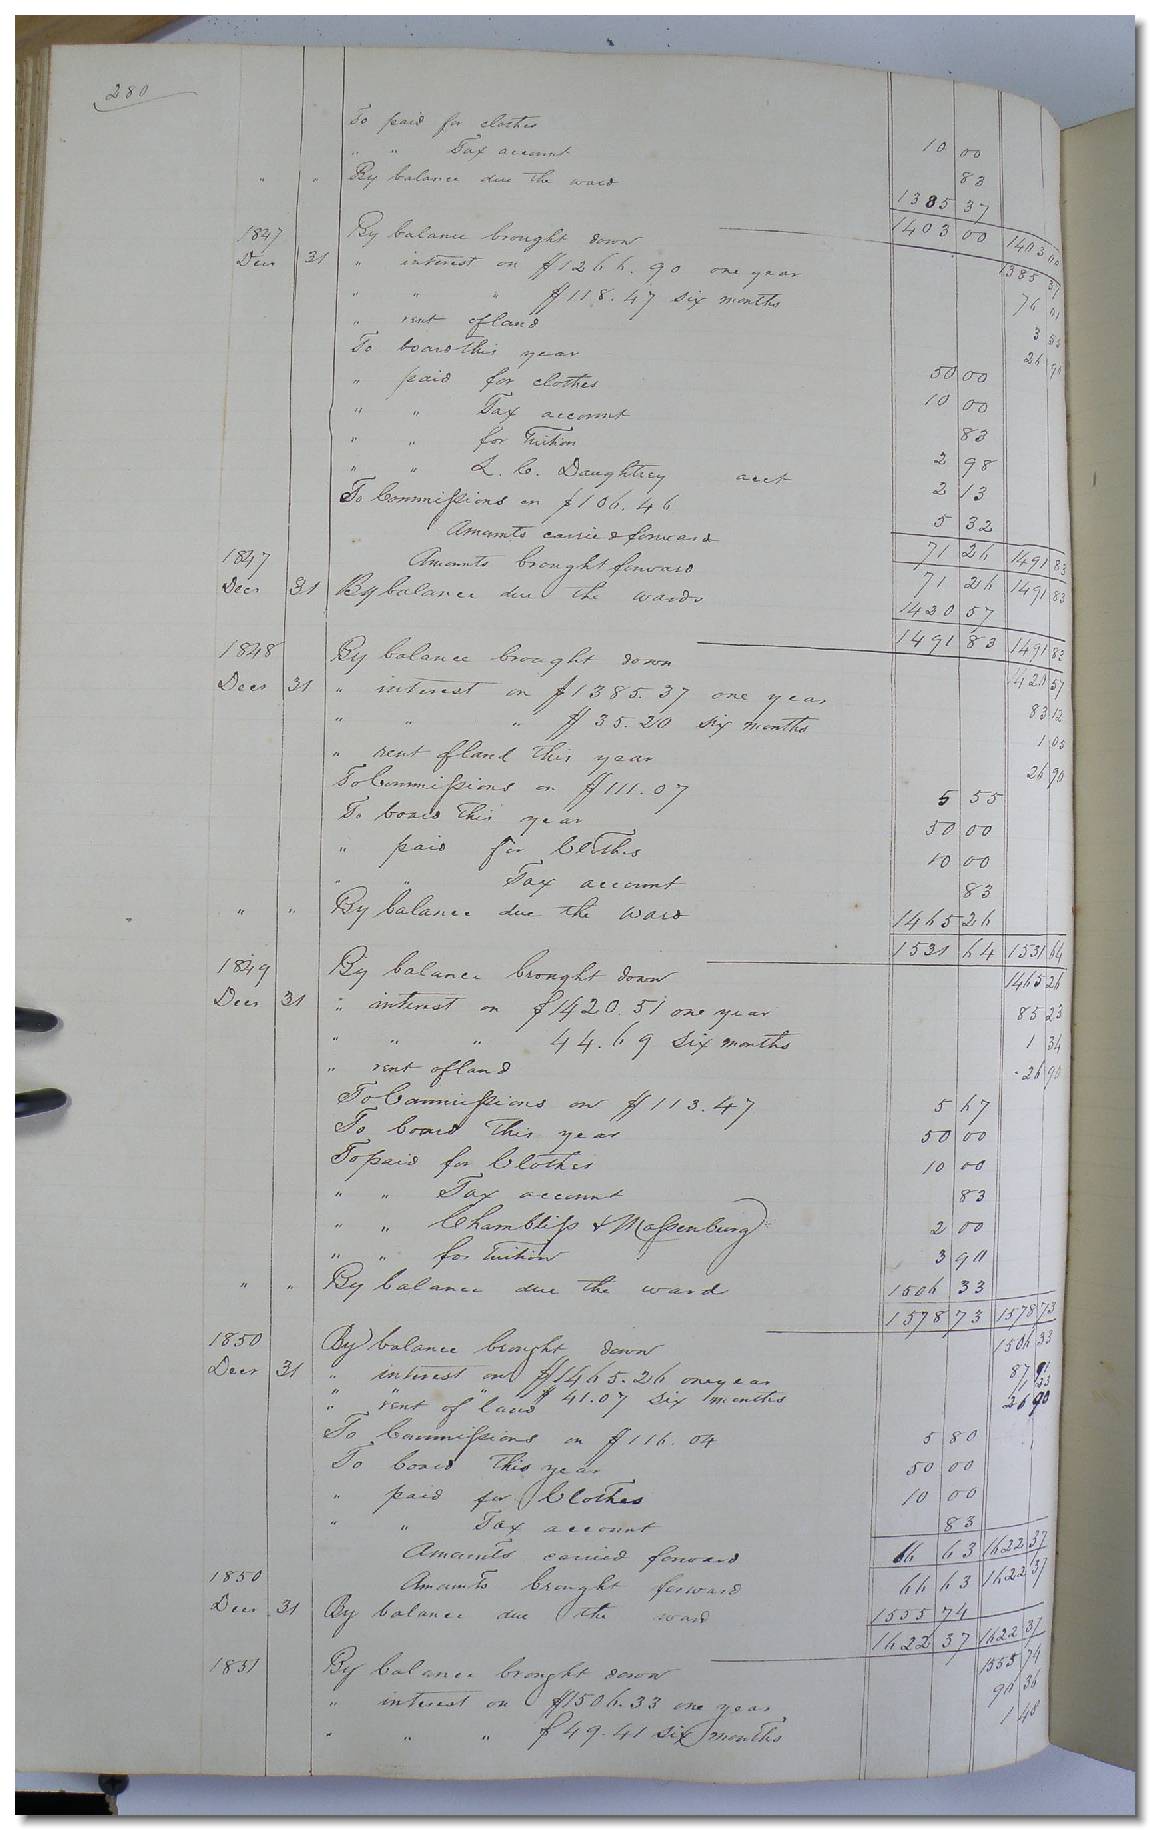 280
To paid for clothes 10 00
" " Tax account 83
" " By balance due the ward 1385 37
1403 00 1403 00
1847 By balance brought down 1385 37
Decr 31 " interest on $1266.90 one year 76 01
" " " $118.47 six months 3 55
" rent of land 26 90
To board this year 50 00
" paid for clothes 10 00
" " Tax account 83
" " for Tuition 2 98
" " L. C. Daughtrey acct 2 13
To Commissions on $106.46 5 32
Amounts carried forward 71 26 1491 83
1847 Amounts brought forward 71 26 1491 83
Decr 31 By balance due the wards 1420 57
1491 83 1491 83
1848 By balance brought down 1420 57
Decr 31 " interest on $1385.37 one year 83 12
" " " $35.20 six months 1 05
" rent of land this year 26 90
To Commissions on $111.07 5 55
To board this year 50 00
" paid for Clothes 10 00
" " Tax account 83
" " By balance due the ward 1465 26
1531 64 1531 64
1849 By balance brought down 1465 26
Decr 31 " interest on $1420.51 one year 85 23
" " " 44.69 six months 1 34
" rent of land 26 90
To Commissions on $113.47 5 67
To board this year 50 00
To paid for Clothes 10 00
" " Tax account 83
" " Chambliss & Massenburg 2 00
" " for tuition 3 90
" " By balance due the ward 1506 33
1578 73 1578 73
1850 By balance brought down 1506 33
Decr 31 " interest on $1465.26 one year 87 91
" " " $41.07 six months 1 23
" rent of land 26 90
To Commissions on $116.04 5 80
To board this year 50 00
" paid for Clothes 10 00
" " Tax account 83
Amounts carried forward 66 63 1622 37
1850 Amounts brought forward 66 63 1622 37
Decr 31 By balance due the ward 1555 74
1622 37 1622 37
1851 By balance brought down 1555 74
" interest on $1506.33 one year 90 36
" " " $49.41 six months 1 48